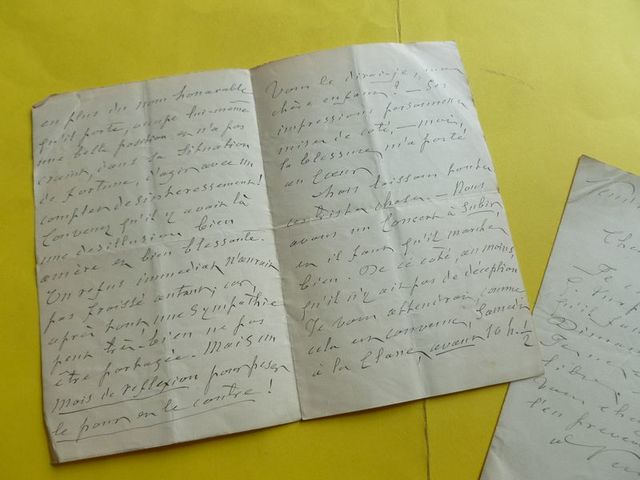 en plus du nom honorable
qu'il porte, occupe lui-même
une belle position et n'a pas
craint, dans sa situation
de fortune, d'agir avec un
complet desinteressement!
Convenez qu'il y avait là
une desillusion bien
amère et bien blessante.
Un refus immediat n'aurait
pas froissé autant, car,
après tout une sympathie
peut très bien ne pas
être partagée. Mais un
mois de reflexion pour peser
le pour et le contre!
Vous le dirai-je, mon
chère enfant? — Ses
impressions personnelles
mises de coté, — moi,
la blessure m'a porté
au Coeur.
Mais laissons tomber
ces tristes choses. — Nous
avons un Concert à subir
et il faut qu'il marche
bien. De ce côté, au moins,
qu'il n'y ait pas de déception
Je vous attendrai, comme
cela est convenu, Samedi
à la Classe, avant 10 h. 1/2
Che
Je
vous